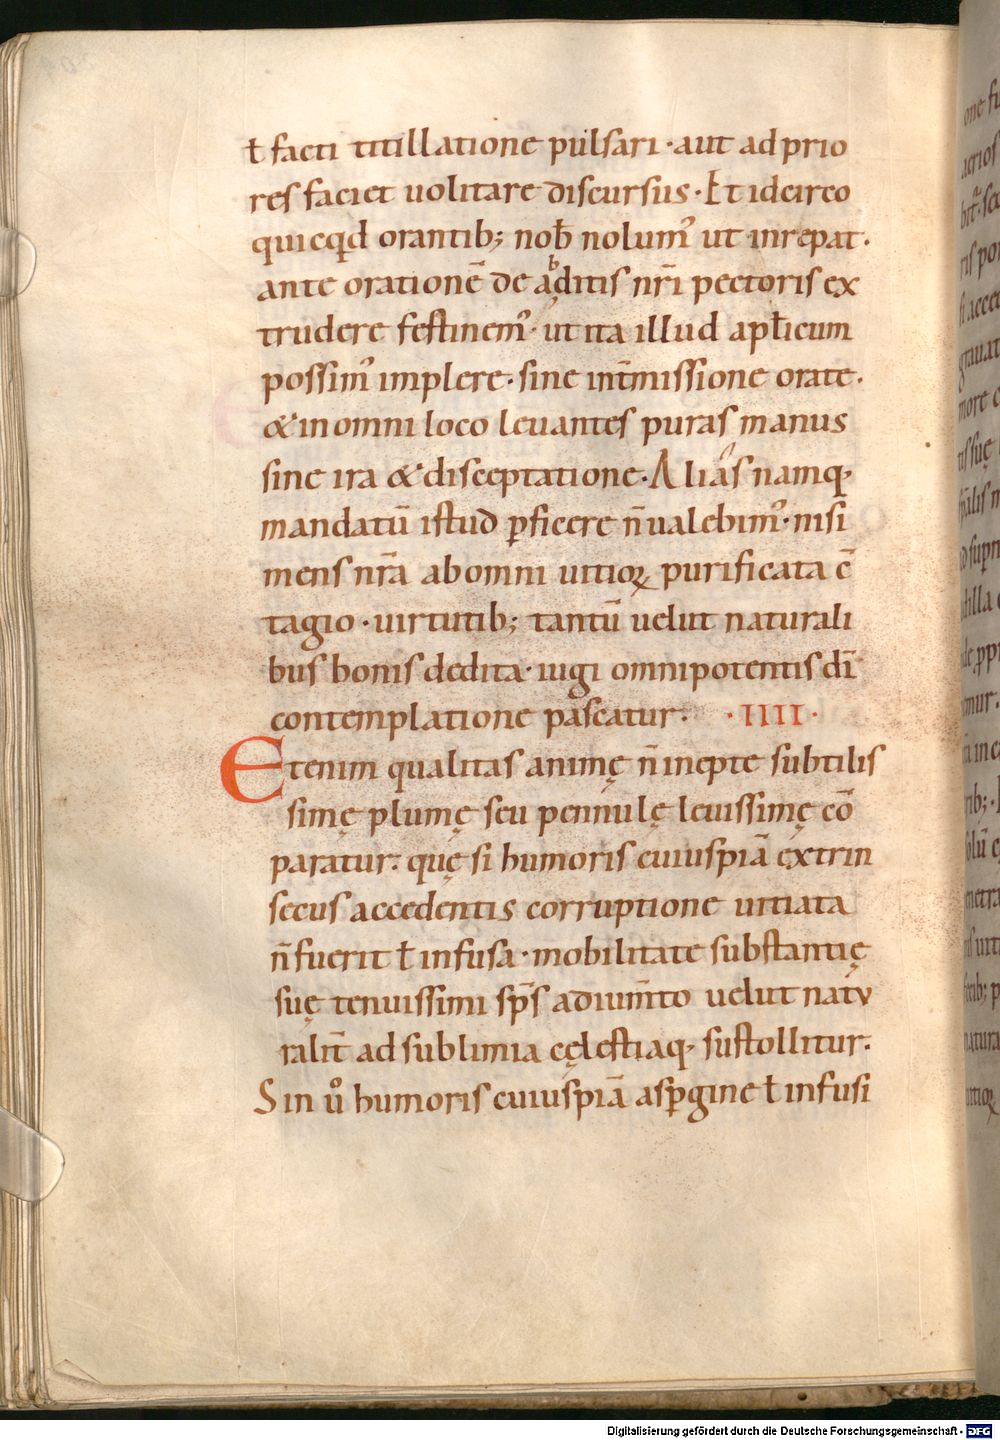 ł facti titillatione pulsari · aut ad prio
res faciet uolitare discursus · Et idcirco
quicqd orantib; nob̄ nolum᾽ ut inrepat ·
ante orationē de abditis nr̄i pectoris ex
trudere festinem᾽ · ut ita illud apłicum
possim᾽ implere · sine int̄missione orate ·
& in omni loco leuantes puras manus
sine ira & disceptatione · Alias namq·
mandatū istud ꝑficere n̄ ualebim᾽ · nisi
mens nr̄a ab omni uitioꝝ purificata c̄
tagio · uirtutib; tantū uelut naturali
bus bonis dedita · iugi omnipotentis dī
contemplatione pascatur · · IIII ·
Etenim qualitas animę n̄ inepte subtilis
simę plumę seu pennulę leuissimę cō
paratur · quę si humoris cuiuspiā extrin
secus accedentis corruptione uitiata
n̄ fuerit ł infusa · mobilitate substantię
suę tenuissimi sp̄s adium̄to uelut natu
ralit̄ ad sublimia cęlestiaq· sustollitur ·
Sin ů humoris cuiuspiā asꝑgine ł infusi
Digitalisierung gefördert durch die Deutsche Forschungsgemeinschaft - DFG